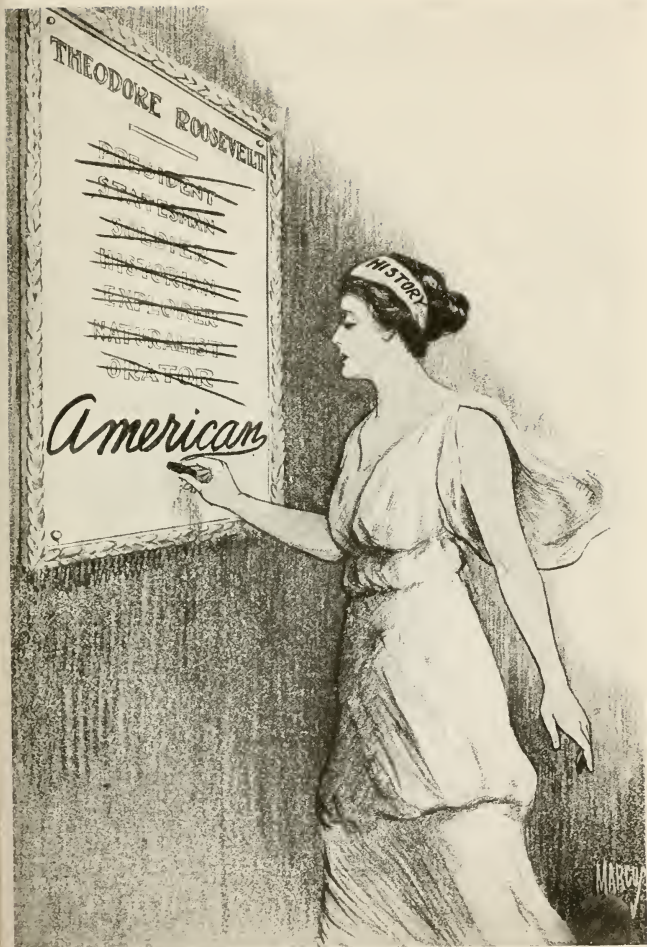 THEODORE ROOSEVELT
PRESIDENT
STATESMAN
SOLDIER
HISTORIAN
EXPLORER
NATURALIST
ORATOR
American
HISTORY
MARCUS